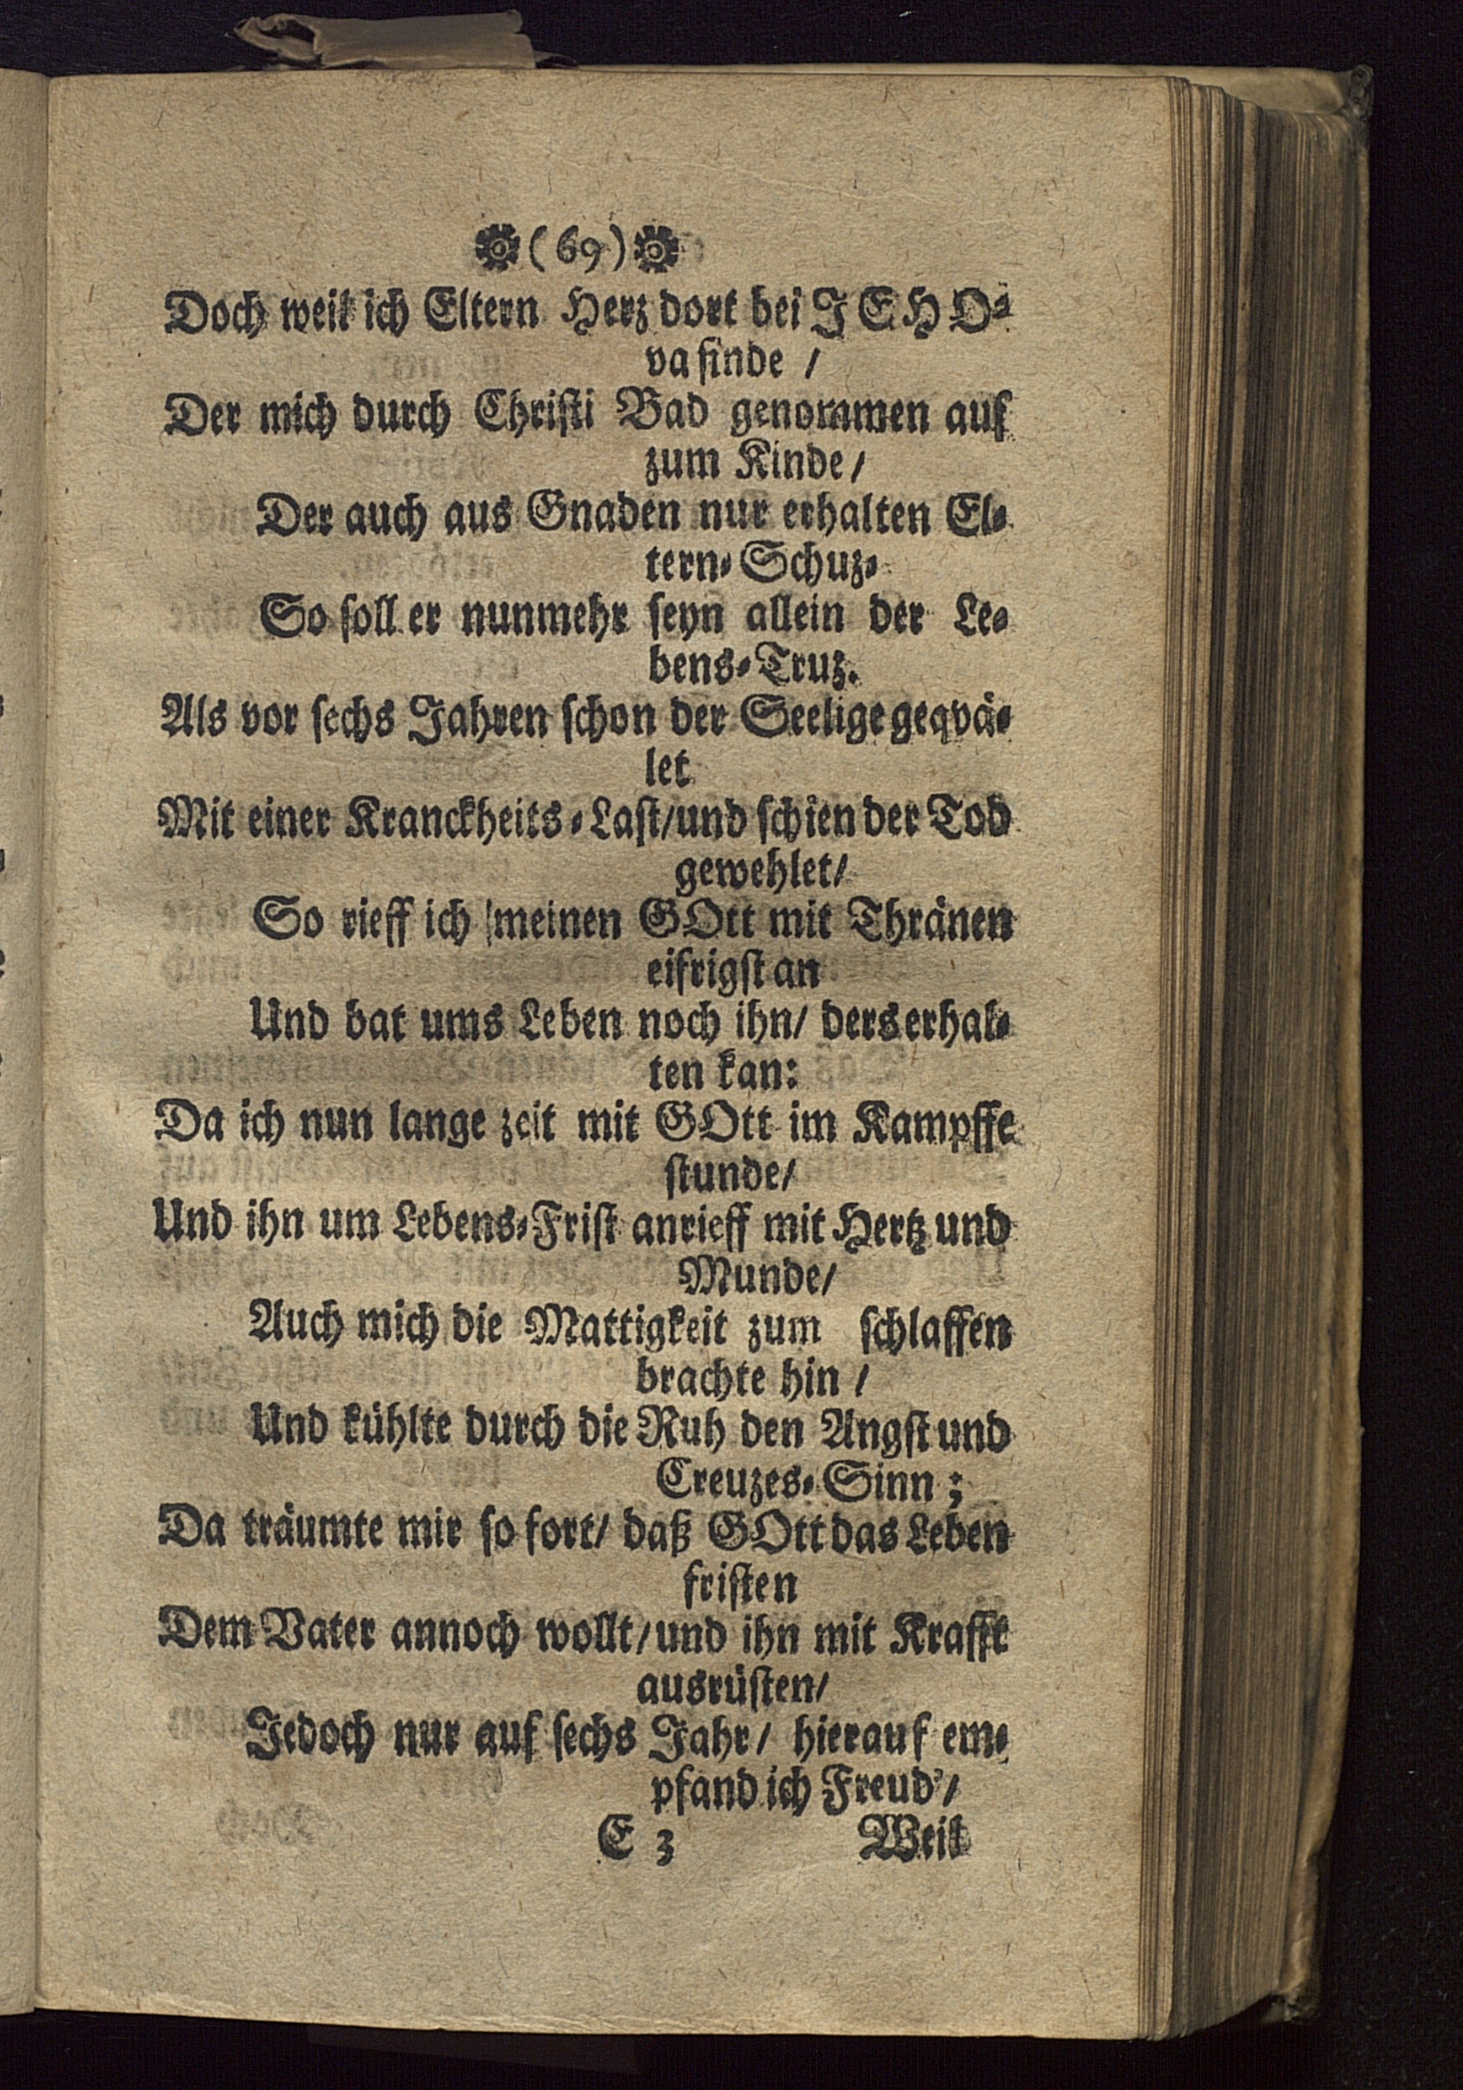 (69)
Doch weil ich Eltern Herz dort bei JEHO-
va finde /
Der mich durch Christi Bad genommen auf
zum Kinde/
Der auch aus Gnaden nur erhalten El-
tern-Schuz-
So soll er nunmehr seyn allein der Le-
bens-Truz.
Als vor sechs Jahren schon der Seelige geqvä-
let
Mit einer Kranckheits-Last/und schien der Tod
gewehlet/
So rieff ich meinen GOtt mit Thränen
eifrigst an
Und bat ums Leben noch ihn/ ders erhal-
ten kan:
Da ich nun lange zeit mit GOtt im Kampffe
stunde/
Und ihn um Lebens-Frist anrieff mit Hertz und
Munde/
Auch mich die Mattigkeit zum schlaffen
brachte hin /
Und kühlte durch die Ruh den Angst und
Creuzes-Sinn;
Da träumte mir so fort/ daß GOtt das Leben
fristen
Dem Vater annoch wollt/und ihn mit Krafft
ausrüsten/
Jedoch nur auf sechs Jahr/ hierauf em-
pfand ich Freud'/
E 3 Weil